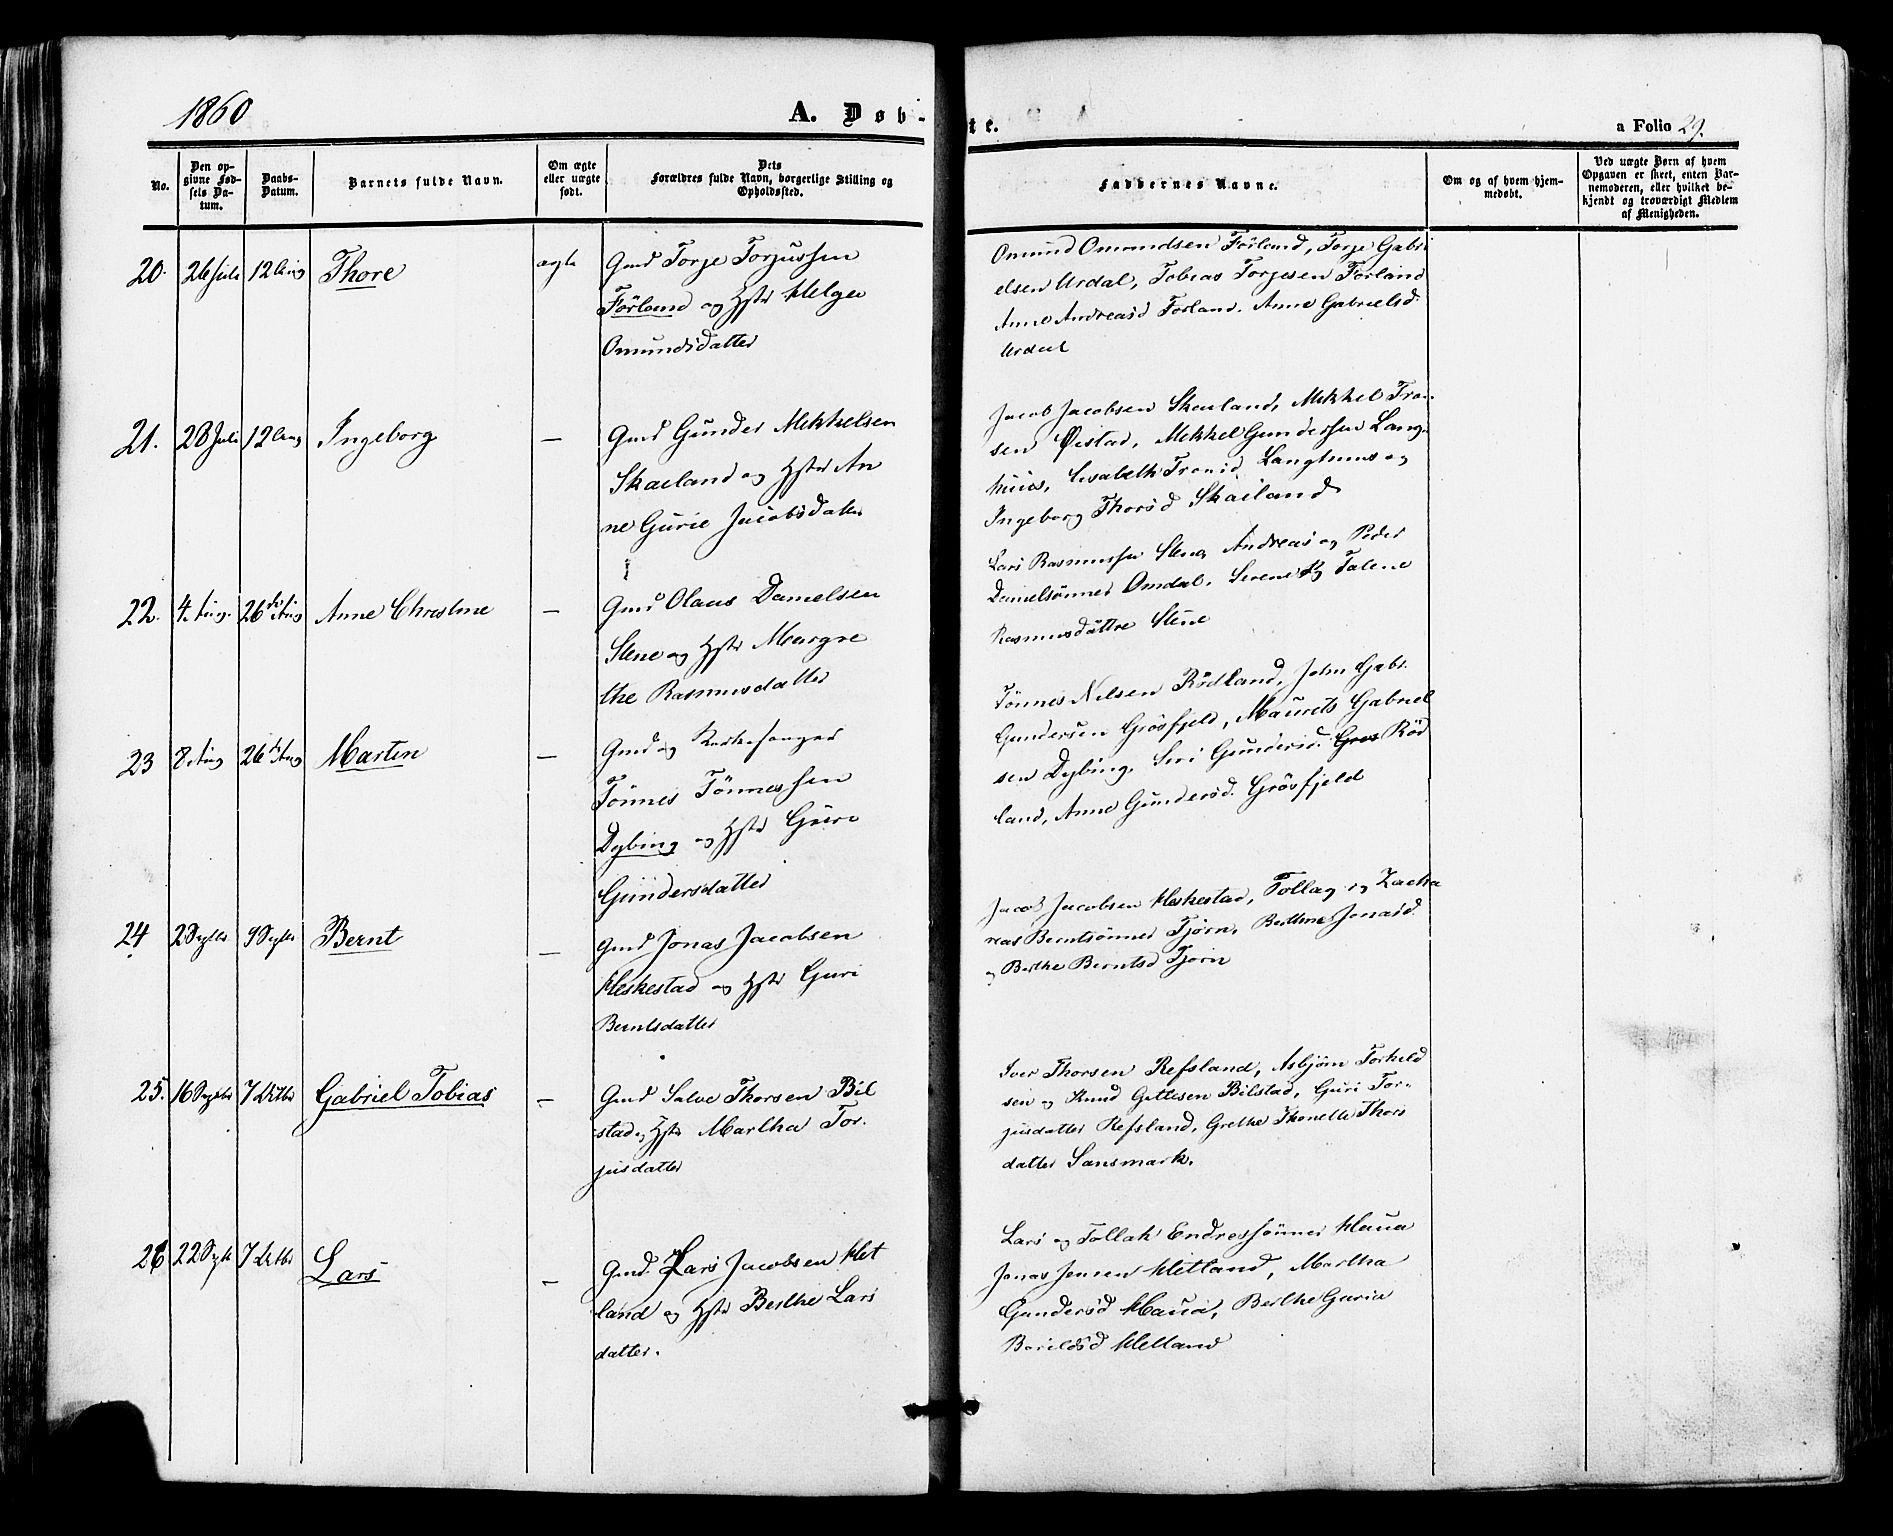 1860
A. Døb-
te.
a Folio 29.
No.
Den op-
givne Fød-
sels Da-
tum.
Daabs-
Datum.
Barnets fulde Navn.
Om ægte
eller uægte
født.
Dets
Forældres fulde Navn, borgerlige Stilling og
Opholdssted.
Faddernes Navne.
Om og af hvem hjem-
medøbt.
Ved uægte Børn af hvem
Opgaven er skeet, enten Bar-
nemoderen, eller hvilket be-
kjendt og troværdigt Medlem
af Menigheden.
20. 26 Juli 12 Aug Thore ægte
Gmd Torje Torjussen
Förland og Hstr Helga
Omundsdatter
Omund Omundsen Förland, Torje Gabri
elsen Urdal, Tobias Torjesen Förland
Anne Andreasd Forland. Anne Gabrielsd.
Urdal
21. 28 Juli 12 Aug Ingeborg —
Gmd Gunder Mekkelsen
Skaeland og Hstr An
ne Gurie Jacobsdater
Jacob Jacobsen Skaeland, Mekkel Tron-
sen Øistad, Mekkel Gundersen Lang-
huus, Lisabeth Tronsd. Langhuus og
Ingeborg Thorsd Skaeland
22. 4 Aug. 26de Aug Anne Christine —
Gmd Olaus Danielsen
Stene og Hstr Margre
the Rasmusdatter
Lars Rasmussen Stene, Andreas og Peder
Danielsønner Omdal. Serene og Talene
Rasmusdåttre Stene
23 8 Aug 26de Aug Martin —
Gmd og Kirkesanger
Tönnes Tönnessen
Dybing og Hstr Guri
Gundersdatter
Tönnes Nilsen Rödland, John Gabr.
Gundersen Grösfjeld, Maurits Gabriel
sen Dybing, Siri Gundersd. Gros Röd
land, Anne Gundersd. Grösfjeld
24 2 Septbr 9 Septbr Bernt —
Gmd Jonas Jacobsen
Heskestad og Hstr Guri
Berntsdatter
Jacob Jacobsen Heskestad, Tollag og Zacha
rias Berntsönner Tjørn, Berthe Jonasd.
og Berthe Berntsd Tjørn
25. 16 Septbr 7 Octbr Gabriel Tobias —
Gmd Salve Thorsen Bil
stad og Hstr Martha Tor-
jusdatter
Iver Thorsen Refsland, Asbjörn Torkeld
sen og Knud Gittlesen Bilstad, Guri Tor-
jusdatter Refsland, Grethe Thonette Thors
datter Sansmark.
26 22 Septb 7 Octbr Lars —
Gmd. Lars Jacobsen Het
land og Hstr Berthe Lars
datter.
Lars og Tollak Endressönner Haua
Jonas Jensen Hetland, Martha
Gundersd Haua, Berthe Guria
Barildsd Hetland